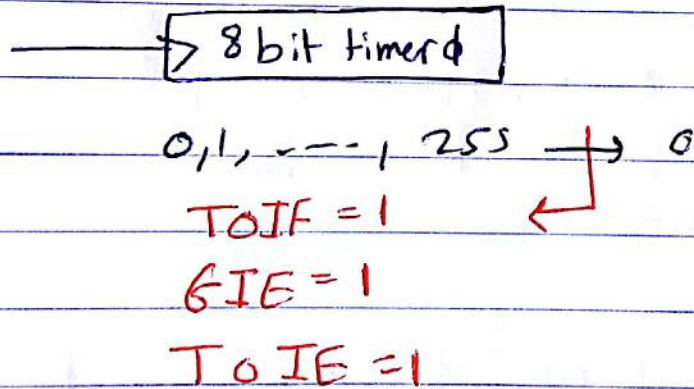 8 bit timer0
0,1, ----, 255 → 0
T0IF = 1
GIE = 1
T0IE = 1